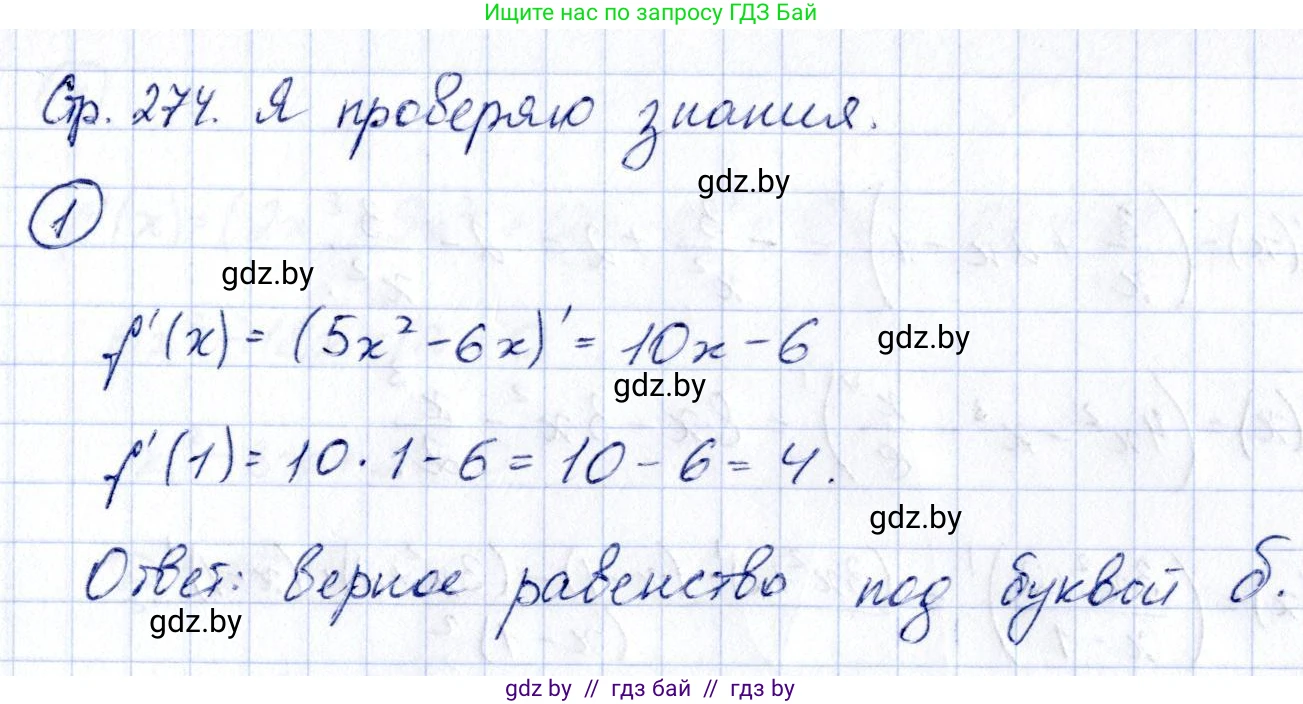 Ищите нас по запросу ГДЗ Бай
Стр. 274. Я проверяю знания.
gdz.by
1
gdz.by
f'(x) = (5x² - 6x)' = 10x - 6
gdz.by
gdz.by
f'(1) = 10 · 1 - 6 = 10 - 6 = 4.
gdz.by
Ответ: верное равенство под буквой б.
gdz.by
gdz by // гдз бай // гдз by